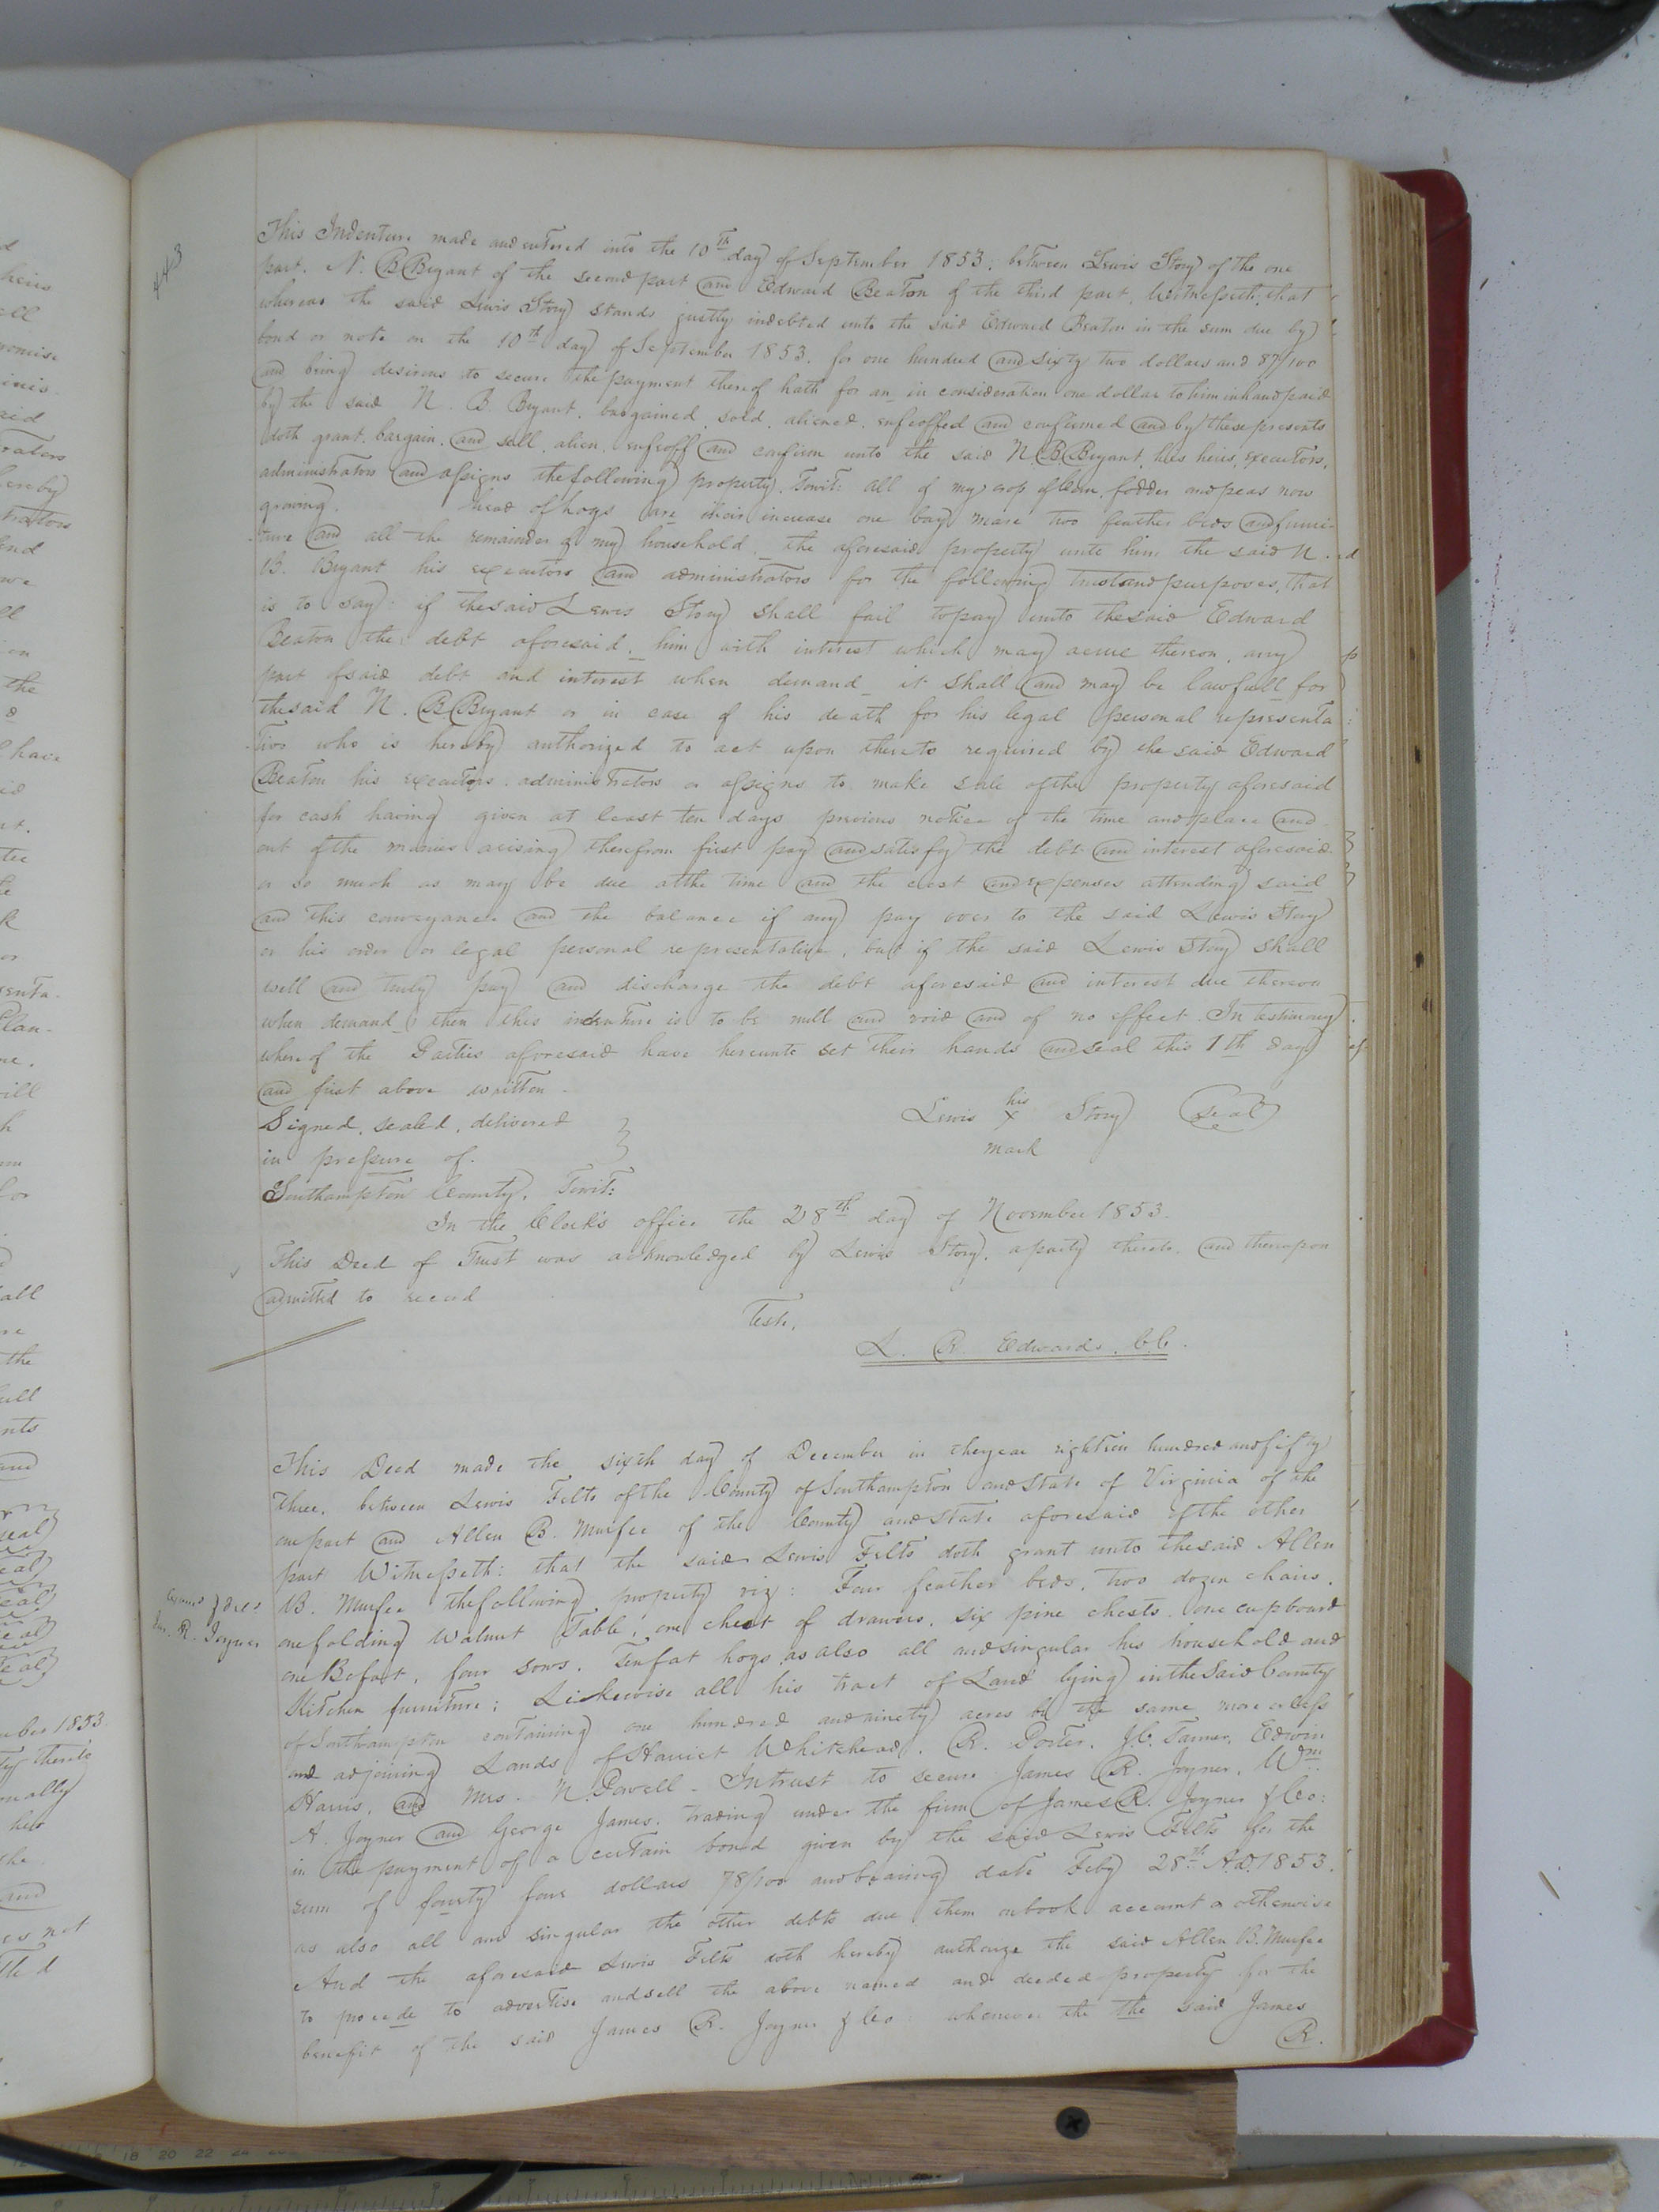 443
This Indenture made and entered into the 10th day of September 1853, between Lewis Story of the one
part, N. B Bryant of the second part and Edward Beaton of the third part, Witnesseth; that
whereas the said Lewis Story stands justly indebted unto the said Edward Beaton in the sum due by
bond or note on the 10th day of September 1853, for one hundred and sixty two dollars and 87/100
and being desirous to secure the payment thereof hath for an in consideration one dollar to him in hand paid
by the said N. B. Bryant, bargained, sold, aliened, enfeoffed and confirmed and by these presents
doth grant, bargain, and sell, alien, enfeoff and confirm unto the said N. B. Bryant, his heirs, executors,
administrators and assigns the following property, Towit: all of my crop of Corn, fodder and peas now
growing, head of hogs are their increase one bay mare two feather beds and furni-
-ture and all the remainder of my household, the aforesaid property unto him the said N.
B. Bryant his executors and administrators for the following trusts and purposes, that
is to say: if the said Lewis Story shall fail to pay unto the said Edward
Beaton the debt aforesaid, him with interest which may acrue thereon, any
part of said debt and interest when demand it shall and may be lawfull for
the said N. B Bryant or in case of his death for his legal personal representa
-tive who is hereby authorized to act upon thereto required by the said Edward
Beaton his executors, administrators or assigns to make sale of the property aforesaid
for cash having given at least ten days previous notice of the time and place and
out of the monies arising therefrom first pay and satisfy the debt and interest aforesaid
or so much as may be due at the time and the cost and expenses attending said
and this conveyance and the balance if any pay over to the said Lewis Story
or his order or legal personal representative, but if the said Lewis Story shall
well and truly pay and discharge the debt aforesaid and interest due thereon
when demand then this indenture is to be null and void and of no effect. In testimony
whereof the Parties aforesaid have hereunto set their hands and seal this 1th day
and first above written
Signed, sealed, delivered } Lewis his x mark Story (Seal)
in presure of.
Southampton County, Towit:
In the Clerk's office the 28th day of November 1853.
This Deed of Trust was acknowledged by Lewis Story, a party thereto, and thereupon
admitted to record
Teste,
L. R. Edwards, C.C.
This Deed made the sixth day of December in the year eighteen hundred and fifty
three, between Lewis Felts of the County of Southampton and State of Virginia of the
one part and Allen B. Murfee of the County and State aforesaid of the other
part Witnesseth: that the said Lewis Felts doth grant unto the said Allen
B. Murfee the following property viz: Four feather beds, two dozen chairs,
Jas. R. Joyner
one folding Walnut Table, one chest of drawers, six pine chests, one cupboard
one Bofat, four sows, Ten fat hogs, as also all and singular his household and
Kitchen furniture; Likewise all his tract of Land lying in the Said County
of Southampton containing one hundred and ninety acres be the same more or less
and adjoining Lands of Harriet Whitehead, R. Porter, J. C. Turner, Edwin
Harris, and Mrs. N. Powell - In trust to secure James R. Joyner, Wm.
A. Joyner and George James, trading under the firm of James R. Joyner & Co:
in the payment of a certain bond given by the said Lewis Felts for the
sum of fourty four dollars 78/100 and bearing date Feby 28th A.D. 1853,
as also all and singular the other debts due them on book account or otherwise
And the aforesaid Lewis Felts doth hereby authorize the said Allen B. Murfee
to procede to advertise and sell the above named and deeded property for the
benefit of the said James R. Joyner & Co: whenever the the said James
R.